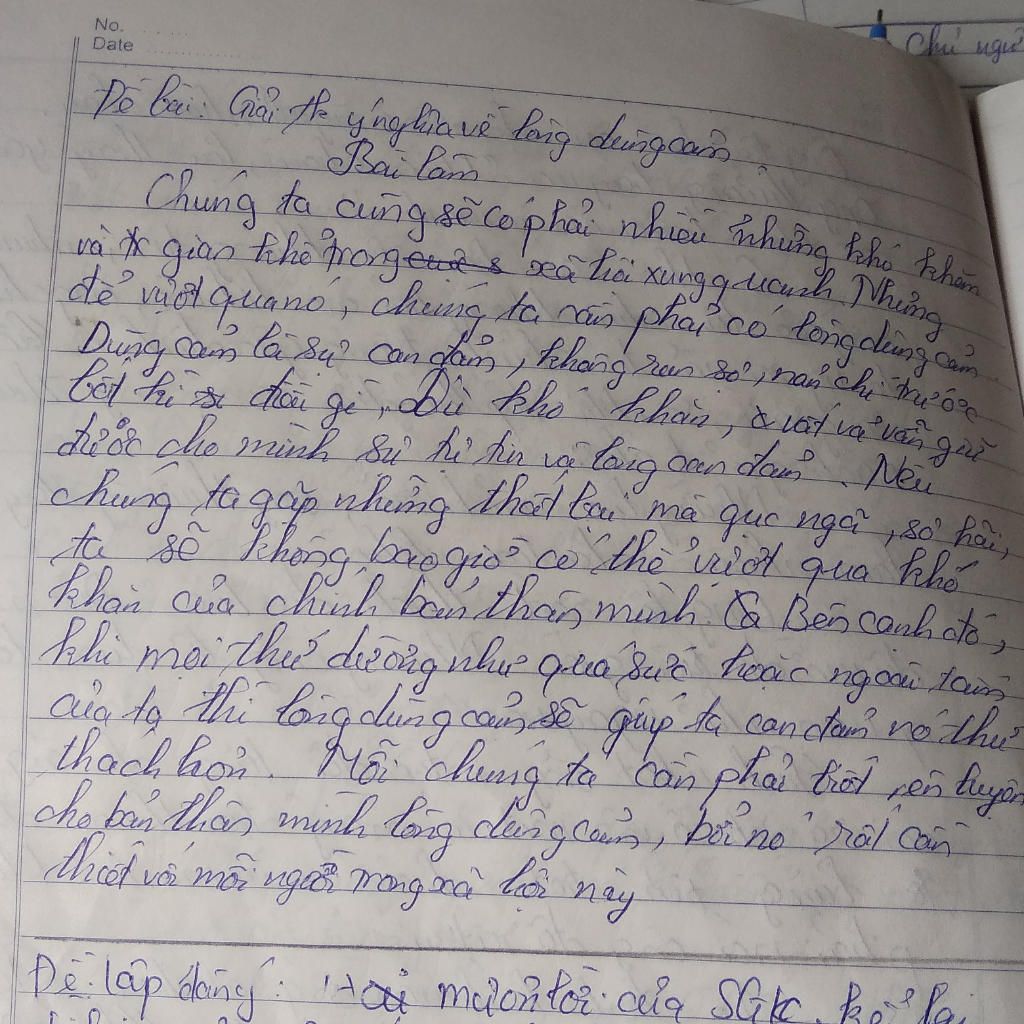 No.
Date
Chủ ngữ
Đề bài: Giải th ý nghĩa về lòng dũng cảm.
Bài làm
Chúng ta cũng sẽ có phải nhiều những khó khăn
và gian khổ trong xã hội xung quanh. Nhưng
để vượt qua nó, chúng ta cần phải có lòng dũng cảm.
Dũng cảm là sự can đảm, không run sợ, nản chí trước
bất kì điều gì. Dù khó khăn, vất vả vẫn giữ
được cho mình sự tự tin và lòng can đảm. Nếu
chúng ta gặp những thất bại mà gục ngã, sợ hãi,
ta sẽ không bao giờ có thể vượt qua khó
khăn của chính bản thân mình. Bên cạnh đó,
khi mọi thứ dường như quá sức hoặc ngoài tầm
của ta thì lòng dũng cảm sẽ giúp ta can đảm nó thử
thách hơn. Mỗi chúng ta cần phải biết rèn luyện
cho bản thân mình lòng dũng cảm, bởi nó rất cần
thiết với mỗi người trong xã hội này
Đề lập dàng: mượn lời của SGK kể lại